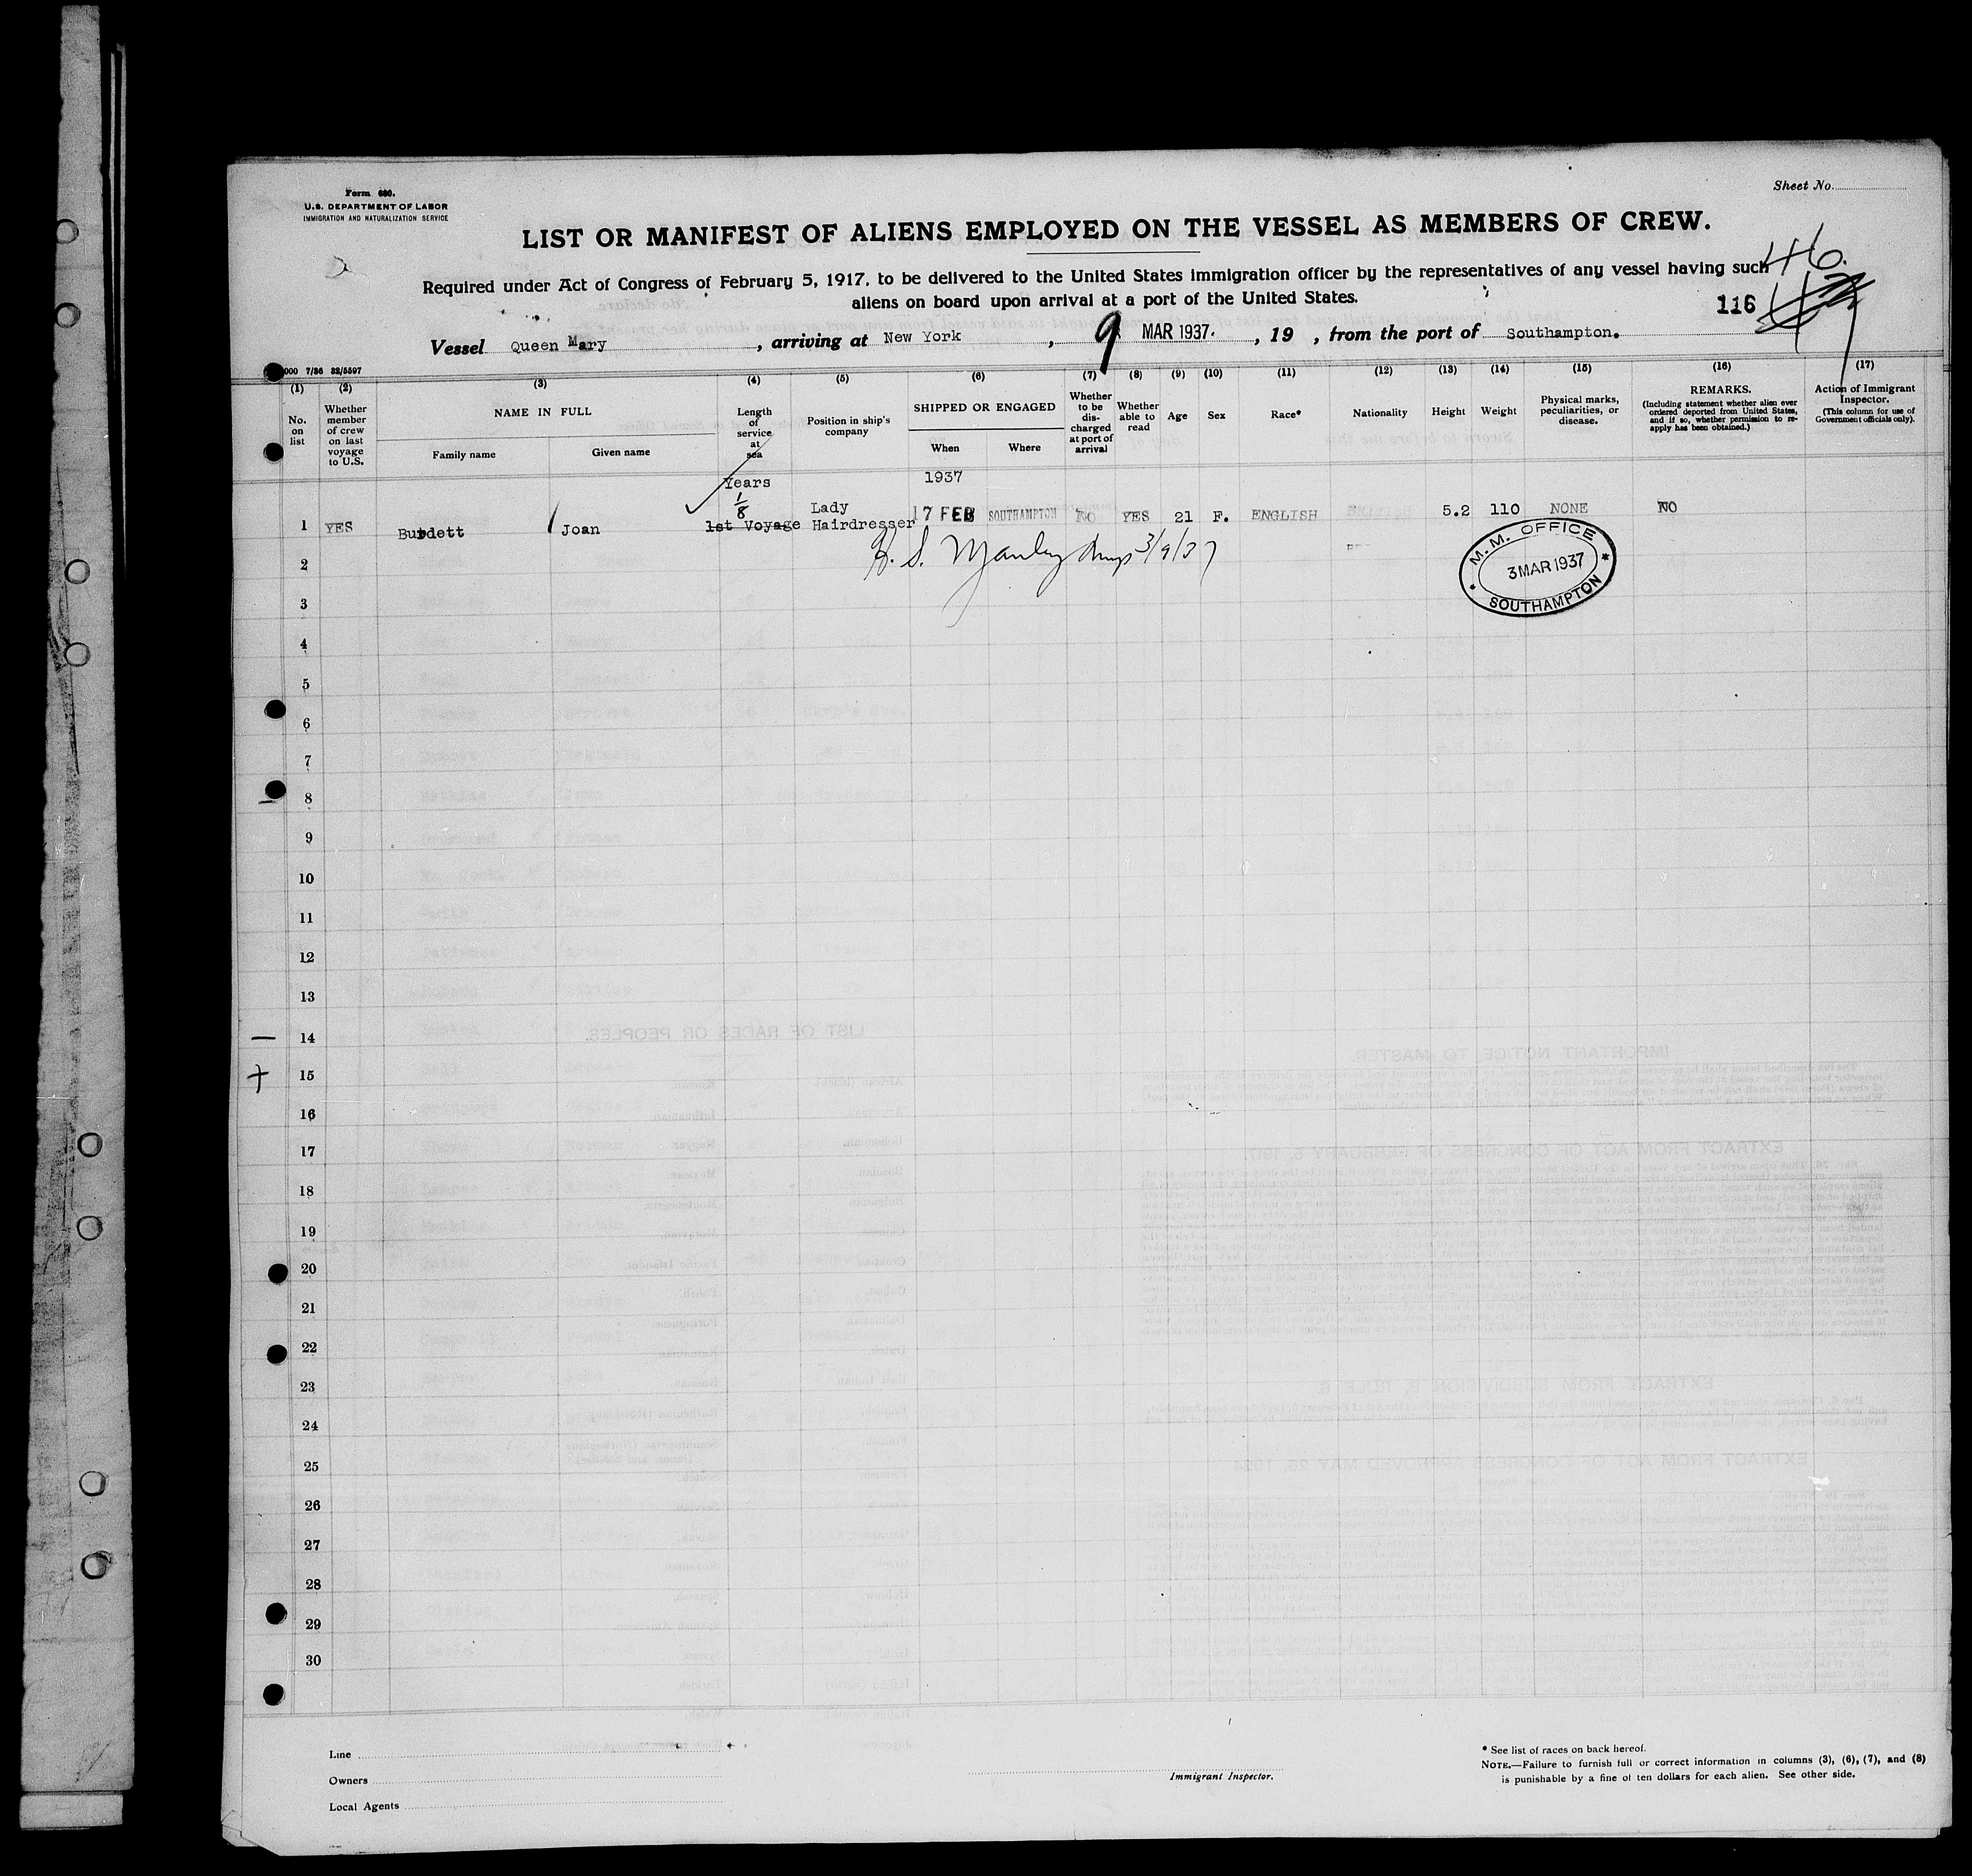 Form 680.
U.S. DEPARTMENT OF LABOR
IMMIGRATION AND NATURALIZATION SERVICE
Sheet No.
LIST OR MANIFEST OF ALIENS EMPLOYED ON THE VESSEL AS MEMBERS OF CREW.
46.
Required under Act of Congress of February 5, 1917, to be delivered to the United States immigration officer by the representatives of any vessel having such
aliens on board upon arrival at a port of the United States.
116
Vessel Queen Mary, arriving at New York, 9 MAR 1937., 19 , from the port of Southampton.
000 7/36 32/5597
(1) (2) (3) (4) (5) (6) (7) (8) (9) (10) (11) (12) (13) (14) (15) (16) (17)
No. on list
Whether member of crew on last voyage to U.S.
NAME IN FULL
Family name
Given name
Length of service at sea
Position in ship's company
SHIPPED OR ENGAGED
When
Where
Whether to be discharged at port of arrival
Whether able to read
Age
Sex
Race*
Nationality
Height
Weight
Physical marks, peculiarities, or disease.
REMARKS.
(Including statement whether alien ever ordered deported from United States, and if so, whether permission to re-apply has been obtained.)
Action of Immigrant Inspector.
(This column for use of Government officials only).
Years
1937
1/8
1 YES Burdett Joan 1st Voyage Lady Hairdresser 17 FEB SOUTHAMPTON NO YES 21 F. ENGLISH BRITISH 5.2 110 NONE NO
H. S. Manley 3/9/37
M. M. OFFICE
3 MAR 1937
SOUTHAMPTON
2
3
4
5
6
7
8
9
10
11
12
13
14
15
16
17
18
19
20
21
22
23
24
25
26
27
28
29
30
Line
Owners
Local Agents
Immigrant Inspector.
* See list of races on back hereof.
NOTE.—Failure to furnish full or correct information in columns (3), (6), (7), and (8)
is punishable by a fine of ten dollars for each alien. See other side.